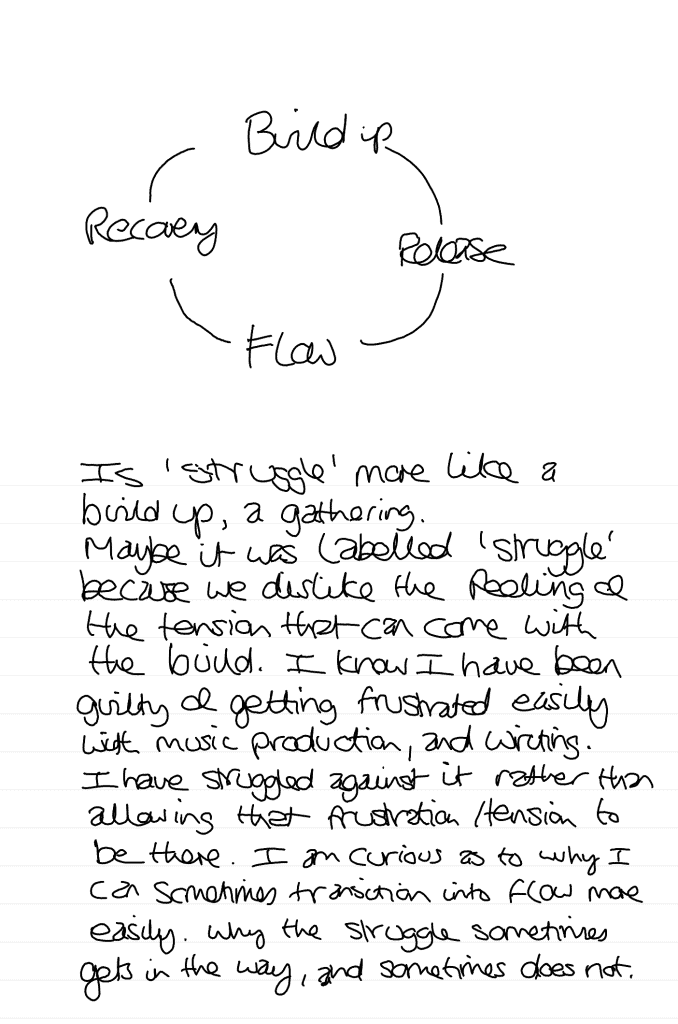 Build up
Recovery
Release
Flow
Is 'struggle' more like a
build up, a gathering.
Maybe it was labelled 'struggle'
because we dislike the feeling of
the tension that can come with
the build. I know I have been
guilty of getting frustrated easily
with music production, and writing.
I have struggled against it rather than
allowing that frustration/tension to
be there. I am curious as to why I
can sometimes transition into flow more
easily. Why the struggle sometimes
gets in the way, and sometimes does not.